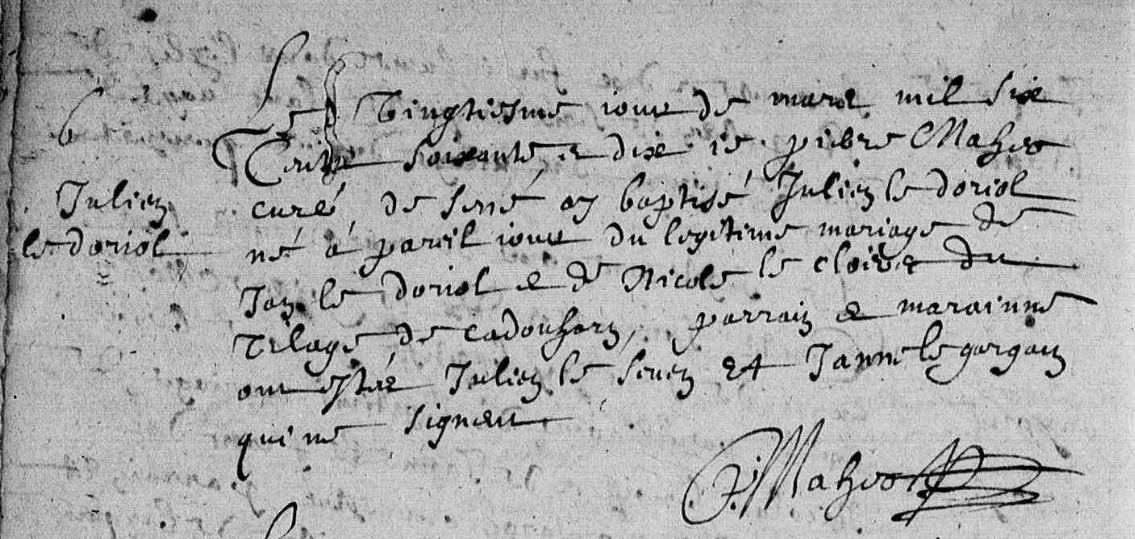 6
Julien
le doriol
Le vingtiesme iour de mars mil six
Cents soixante et dix ie pierre Maheo
curé de séné ay baptisé Julien le doriol
né à pareil iour du legitime mariage de
Jan le doriol et de Nicole le cloirec du
vilage de cadouharn, parrain et marainne
ont esté Julien le seven et Janne le gargan
qui ne signent
P. Maheo